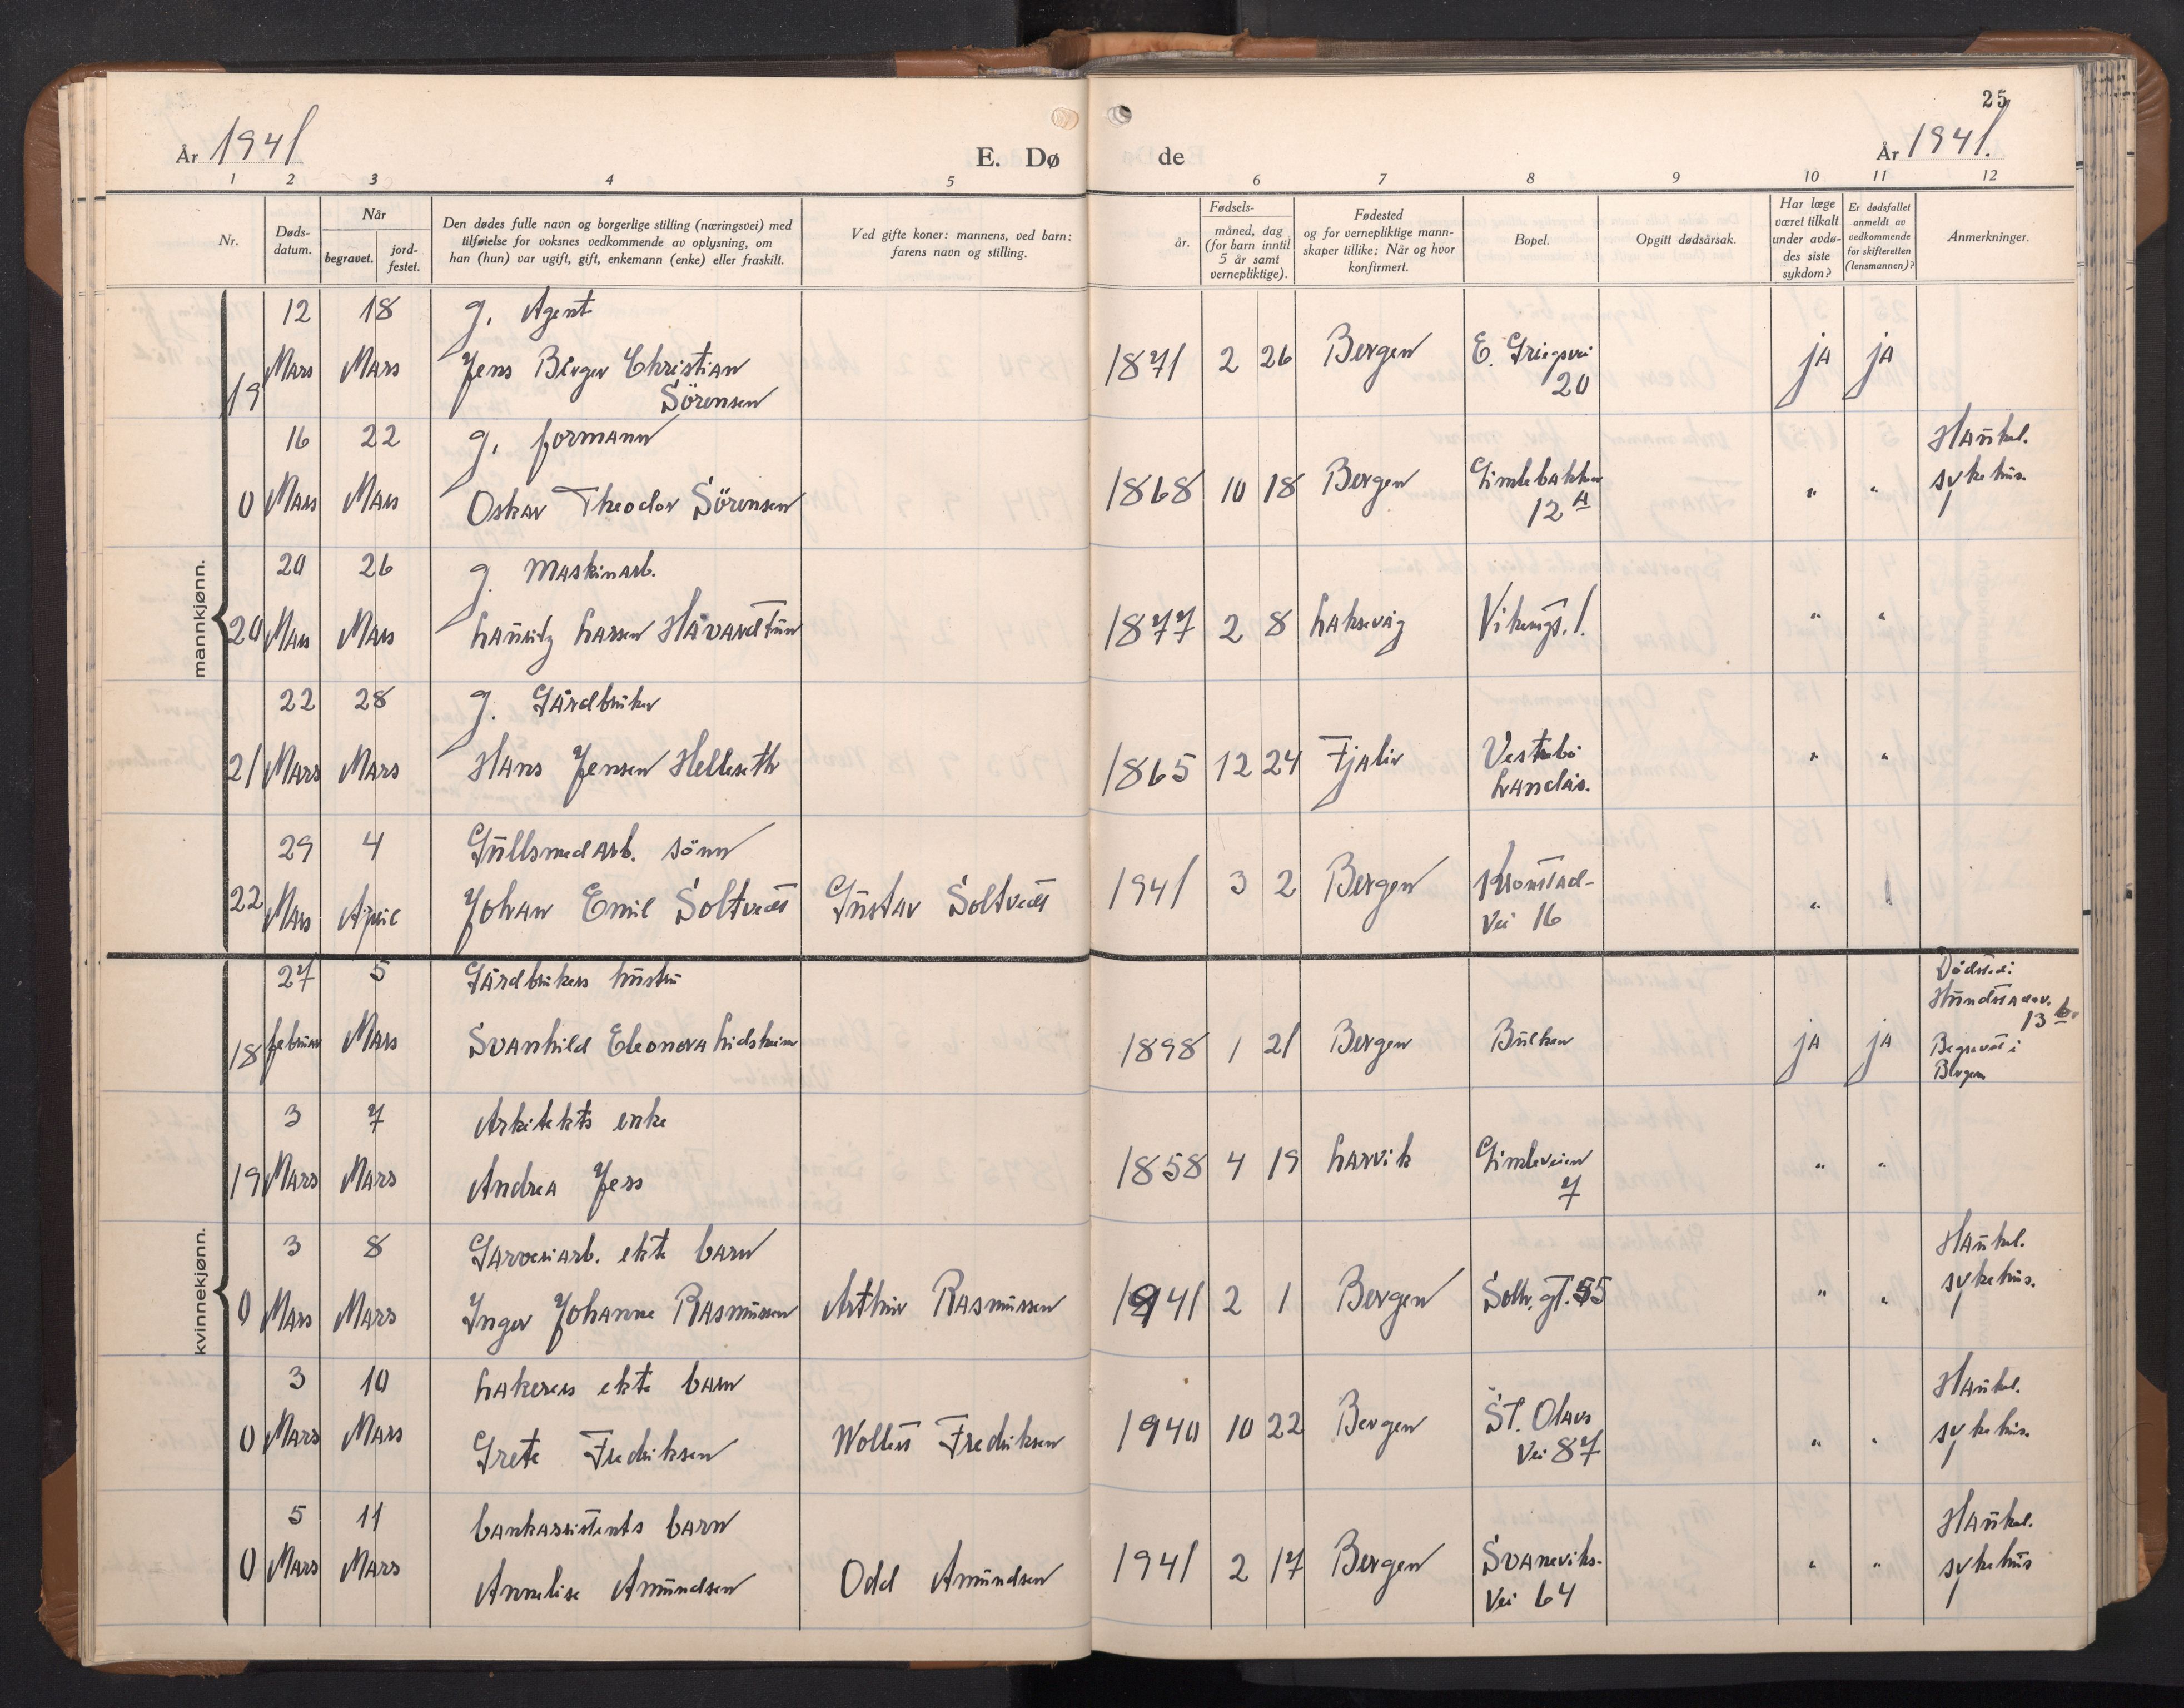 25
År 1941
E. Dø
de
År 1941.
1 2 3 4 5 6 7 8 9 10 11 12
Nr.
Døds-
datum.
Når
begravet.
jord-
festet.
Den dødes fulle navn og borgerlige stilling (næringsvei) med
tilføielse for voksnes vedkommende av oplysning, om
han (hun) var ugift, gift, enkemann (enke) eller fraskilt.
Ved gifte koner: mannens, ved barn:
farens navn og stilling.
Fødsels-
år.
måned, dag
(for barn inntil
5 år samt
vernepliktige).
Fødested
og for vernepliktige mann-
skaper tillike: Når og hvor
konfirmert.
Bopel.
Opgitt dødsårsak.
Har læge
været tilkalt
under avdø-
des siste
sykdom?
Er dødsfallet
anmeldt av
vedkommende
for skifteretten
(lensmannen)?
Anmerkninger.
mannkjønn.
12 18 g. Agent
19 Mars Mars Jens Birger Christian
Sörensen
1871 2 26 Bergen E. Griegsvei
20
ja ja
16 22 g. formann
0 Mars Mars Oskar Theodor Sörensen
1868 10 18 Bergen Gimlebakken
12 A
" "
Haukel.
sykehus.
20 26 g. Maskinarb.
20 Mars Mars Lauritz Larsen Håvardtun
1877 2 8 Laksevåg Vikingg. 1.
" "
22 28 g. Gårdbruker
21 Mars Mars Hans Jensen Helleseth
1865 12 24 Fjaler Vestrebö
Landås.
" "
29 4 Gullsmedarb. sönn
22 Mars April Johan Emil Soltvedt Gustav Soltvedt
1941 3 2 Bergen Kronstad-
Vei 16
" "
kvinnekjønn.
27 5 Gårdbrukers hustru
18 februar Mars Svanhild Eleonora Lidsheim
1898 1 21 Bergen Bulken
ja ja
Dödsted:
Hundstadv.
13 b.
Begravet i
Bergen
3 7 Arkitekts enke
19 Mars Mars Andrea Jers
1858 4 19 Larvik Gimleveien
7
" "
3 8 Garveriarb. ekte barn
0 Mars Mars Inger Johanne Rasmussen Arthur Rasmussen
1941 2 1 Bergen Solh. gt. 55
" "
Haukel.
sykehus.
3 10 Lakerers ekte barn
0 Mars Mars Grete Fredriksen Wollert Fredriksen
1940 10 22 Bergen St. Olavs
Vei 87
" "
Haukel.
sykehus.
5 11 bankassistents barn
0 Mars Mars Annelise Amundsen Odd Amundsen
1941 2 17 Bergen Svaneviks-
Vei 64
" "
Haukel.
sykehus